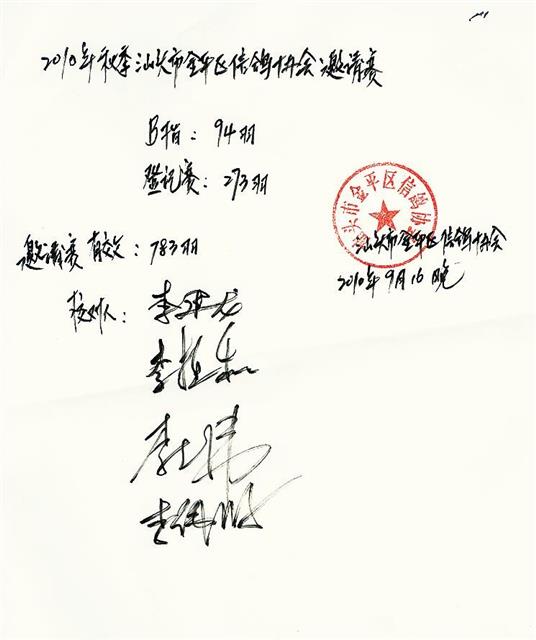 2010年秋季汕头市金平区信鸽协会邀请赛
B指：94羽
登记赛：273羽
汕头市金平区信鸽协会
邀请赛有效：783羽
汕头市金平区信鸽协会
2010年9月16晚
核对人：